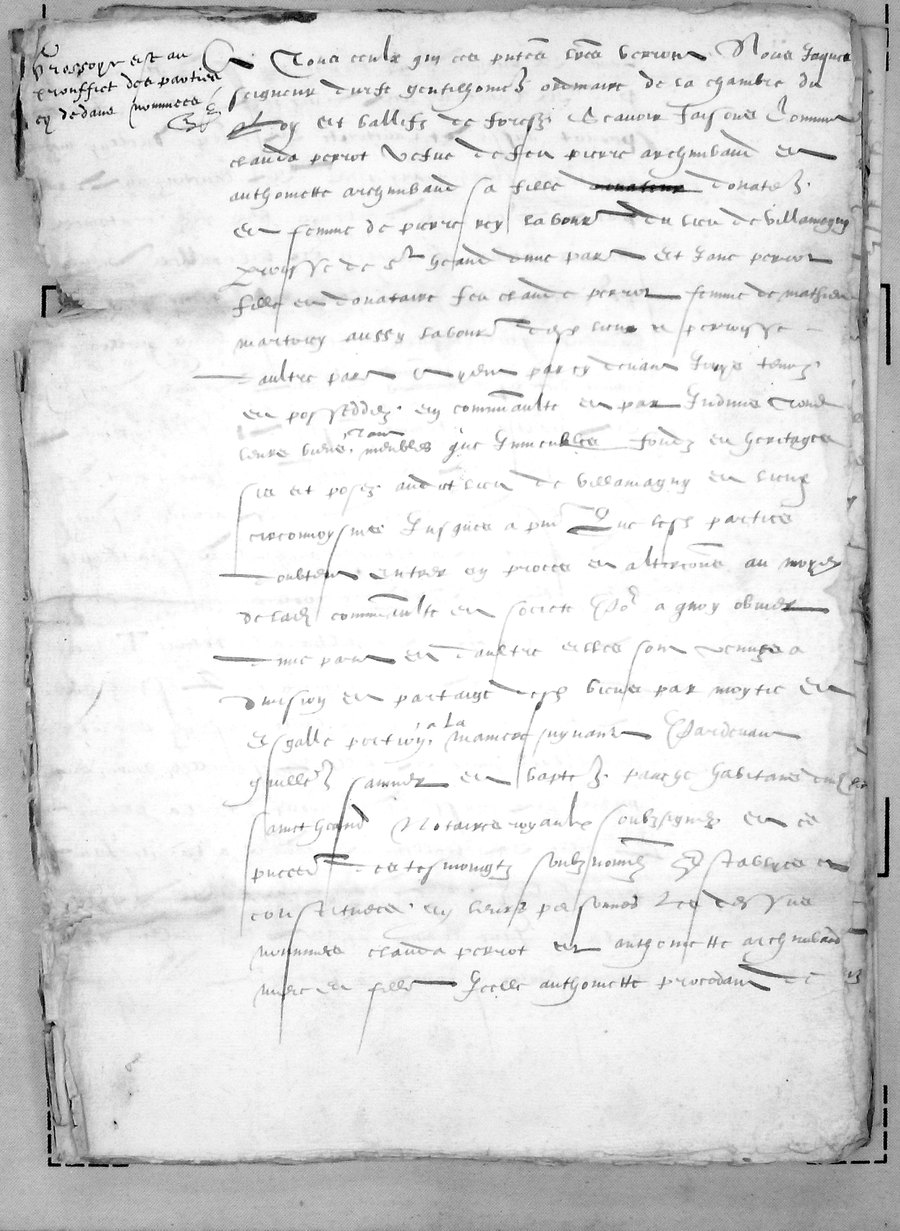 Grossoye est au
prouffict des parties
cy dedans nommees
A Tous ceulx qui ces pntes lres verront Nous Jaques
seigneur durfe gentilhome ordinaire de la chambre du
Roy et baillif de forestz scavoir faisons comme
clauda perrot vefve de feu pierre archimbaud et
anthoinette archimbaud sa fille donatere
et femme de pierre rey labour du lieu de villamagny
proisse de st heand dune part et Jane perrot
fille et donataire feu claude perrot femme de mathieu
martory aussy labour desd lieux et perroysse
daultre part ayent par cy devant Joys tenu
et possedder en communaulte et par Indivis tous
leurs biens tant meubles que Immeubles fondz et heritages
sis et posez audict lieu de villamagny et lieux
circonvoysins Jusques a pnt Que lesd parties
doubtent entrer en proces et altercons au moyen
de lad communaulte et societe Po a quoy obvier
dune part et daultre elles sont venues a
division et partaige desd biens par moytie et
esgalle portion a la maniere suyvant Pardevant
guille et bapte habitans
sainct heand Notaires royaulx soubzsignez et en
pnce des tesmoingtz soubz nommez Establyes et
constituees en leurs personnes Les dessus
nommees clauda perrot et anthoinette archimbaud
mere et fille Icelle anthoinette procedant de